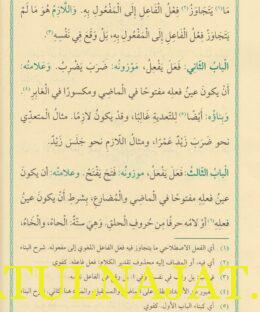 مَا(١) يَتَجَاوَزُ(٢) فِعْلُ الْفَاعِلِ إِلَى الْمَفْعُولِ بِهِ. وَاللَّازِمُ هُوَ مَا لَمْ
يَتَجَاوَزْ فِعْلُ الْفَاعِلِ إِلَى الْمَفْعُولِ بِهِ، بَلْ وَقَعَ فِي نَفْسِهِ(٣).
الْبَابُ الثَّانِي: فَعَلَ يَفْعِلُ، مَوْزُونُهُ: ضَرَبَ يَضْرِبُ. وَعَلَامَتُهُ:
أَنْ يَكُونَ عَيْنُ فِعْلِهِ مَفْتُوحًا فِي الْمَاضِي وَمَكْسُورًا فِي الْغَابِرِ(٤).
وَبِنَاؤُهُ: أَيْضًا(٥) لِلتَّعْدِيَةِ غَالِبًا، وَقَدْ يَكُونُ لَازِمًا. مِثَالُ الْمُتَعَدِّي
نَحْوُ ضَرَبَ زَيْدٌ عَمْرًا، وَمِثَالُ اللَّازِمِ نَحْوُ جَلَسَ زَيْدٌ.
الْبَابُ الثَّالِثُ: فَعَلَ يَفْعَلُ، مَوْزُونُهُ: فَتَحَ يَفْتَحُ. وَعَلَامَتُهُ: أَنْ يَكُونَ
عَيْنُ فِعْلِهِ مَفْتُوحًا فِي الْمَاضِي وَالْمُضَارِعِ، بِشَرْطِ أَنْ يَكُونَ عَيْنُ
فِعْلِهِ(٦) أَوْ لَامُهُ حَرْفًا مِنْ حُرُوفِ الْحَلْقِ، وَهِيَ سِتَّةٌ: الْحَاءُ، وَالْخَاءُ،
(١) أي الفعل الاصطلاحي ما يتجاوز فيه فعل الفاعل اللغوي إلى مفعوله. شرح البناء
(٢) أي فيه، أو المضاف إليه محذوف تقدير الكلام: فعل فاعله. كفوي
(٥) أي كبناء الباب الأول. كفوي